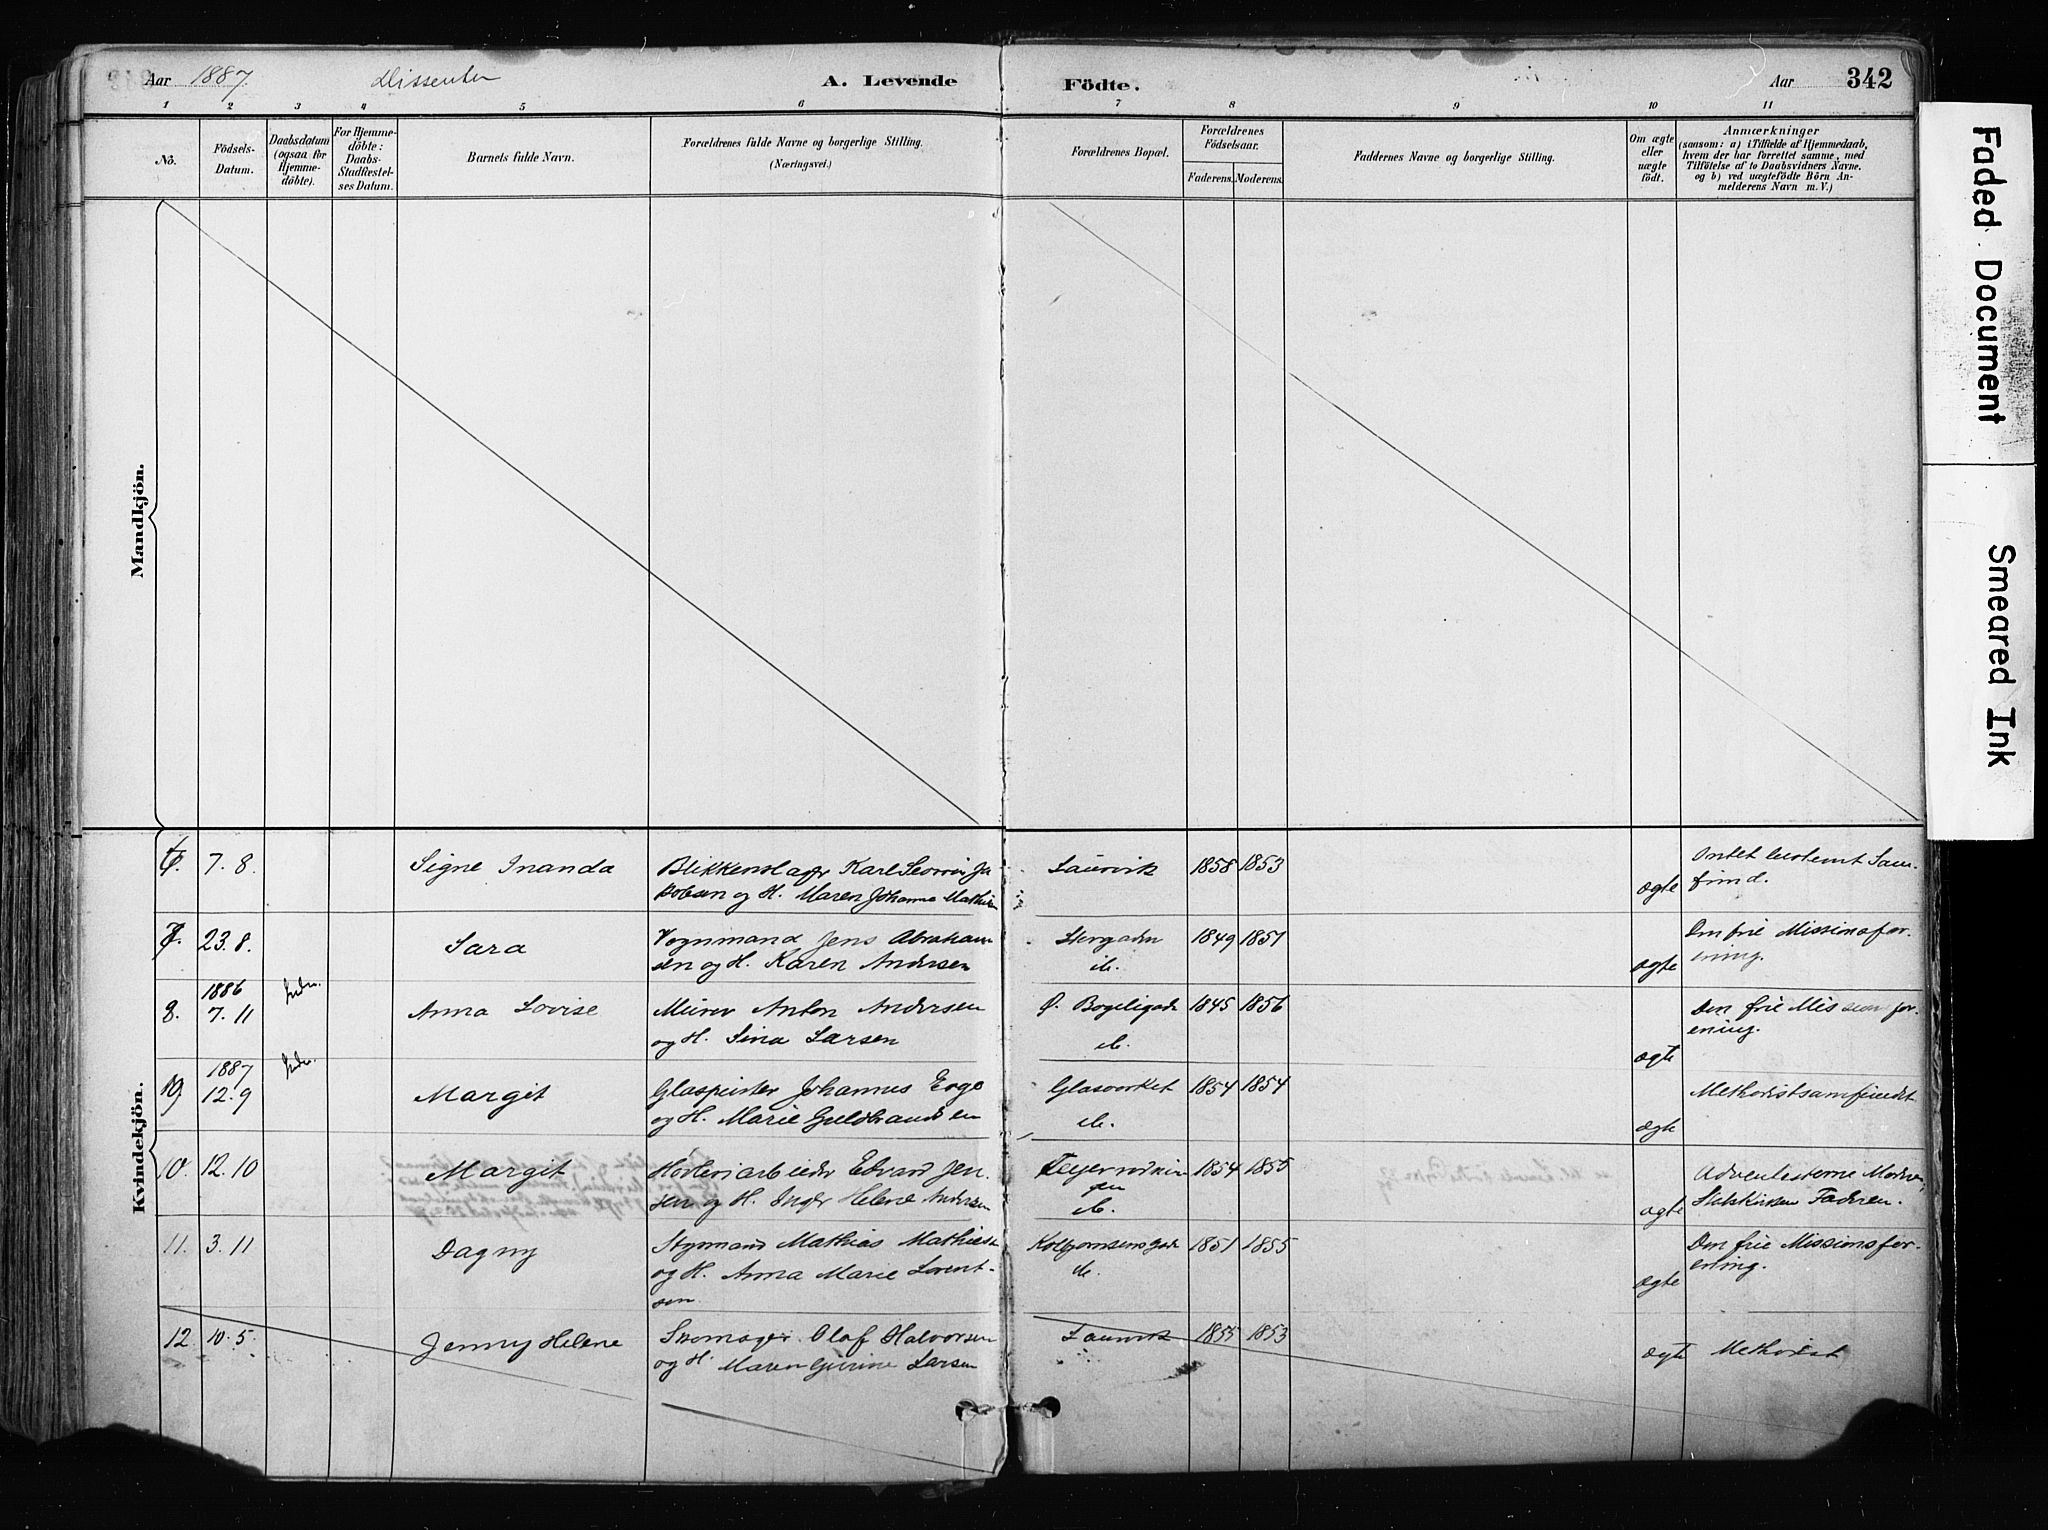 Aar 1887. Dissenter A. Levende Födte. Aar 342
1 2 3 4 5 6 7 8 9 10 11
Nō.
Födsels-
Datum.
Daabsdatum
(ogsaa for
Hjemme-
döbte).
For Hjemme-
döbte:
Daabs-
Stadfæstel-
ses Datum.
Barnets fulde Navn.
Forældrenes fulde Navne og borgerlige Stilling.
(Næringsvei.)
Forældrenes Bopæl.
Forældrenes
Födselsaar.
Faderens. Moderens.
Faddernes Navne og borgerlige Stilling.
Om ægte
eller
uægte
födt.
Anmærkninger
(saasom: a) i Tilfælde af Hjemmedaab,
hvem der har forrettet samme, med
Tilföielse af to Daabsvidners Navne.
og b) ved uægtefödte Börn An-
melderens Navn m. V.)
Mandkjön.
Kvindekjön.
6. 7. 8. Signe Inanda Blikkenslager Karl Ja-
kobsen og H. Maren Johanne Mathisen
Laurvik 1858 1853 ægte
Intet bestemt Sam-
fund.
7. 23. 8. Sara Vognmand Jens Abraham-
sen og H. Karen Andersen
1849 1851 ægte
Den frie Missionsfor-
ening.
1886
8. 7. 11 Anna Lovise Murer Anton Andersen
og H. Sina Larsen
1845 1856 ægte
Den frie Missionsfor-
ening.
1887
9. 12. 9 Margit Glaspuster Johannes
og H. Marie Guldbrandsen
Glasværket 1854 1854 ægte
Methodistsamfundet
10. 12. 10 Margit Høvleriarbeider Edvard Jen-
sen og H. Inger Helene Andersen
1854 1855 ægte
Adventisterne Modren,
Statskirken Fadren.
11. 3. 11 Dagny Styrmand Mathias Mathiesen
og H. Anna Marie Lorent-
sen
1851 1855 ægte
Den frie Missionsfor-
ening.
12. 10. 5. Jenny Helene Skomager Olaf Halvorsen
og H. Maren Gurine Larsen
Laurvik 1855 1853 ægte Methodist
Faded Document
Smeared Ink